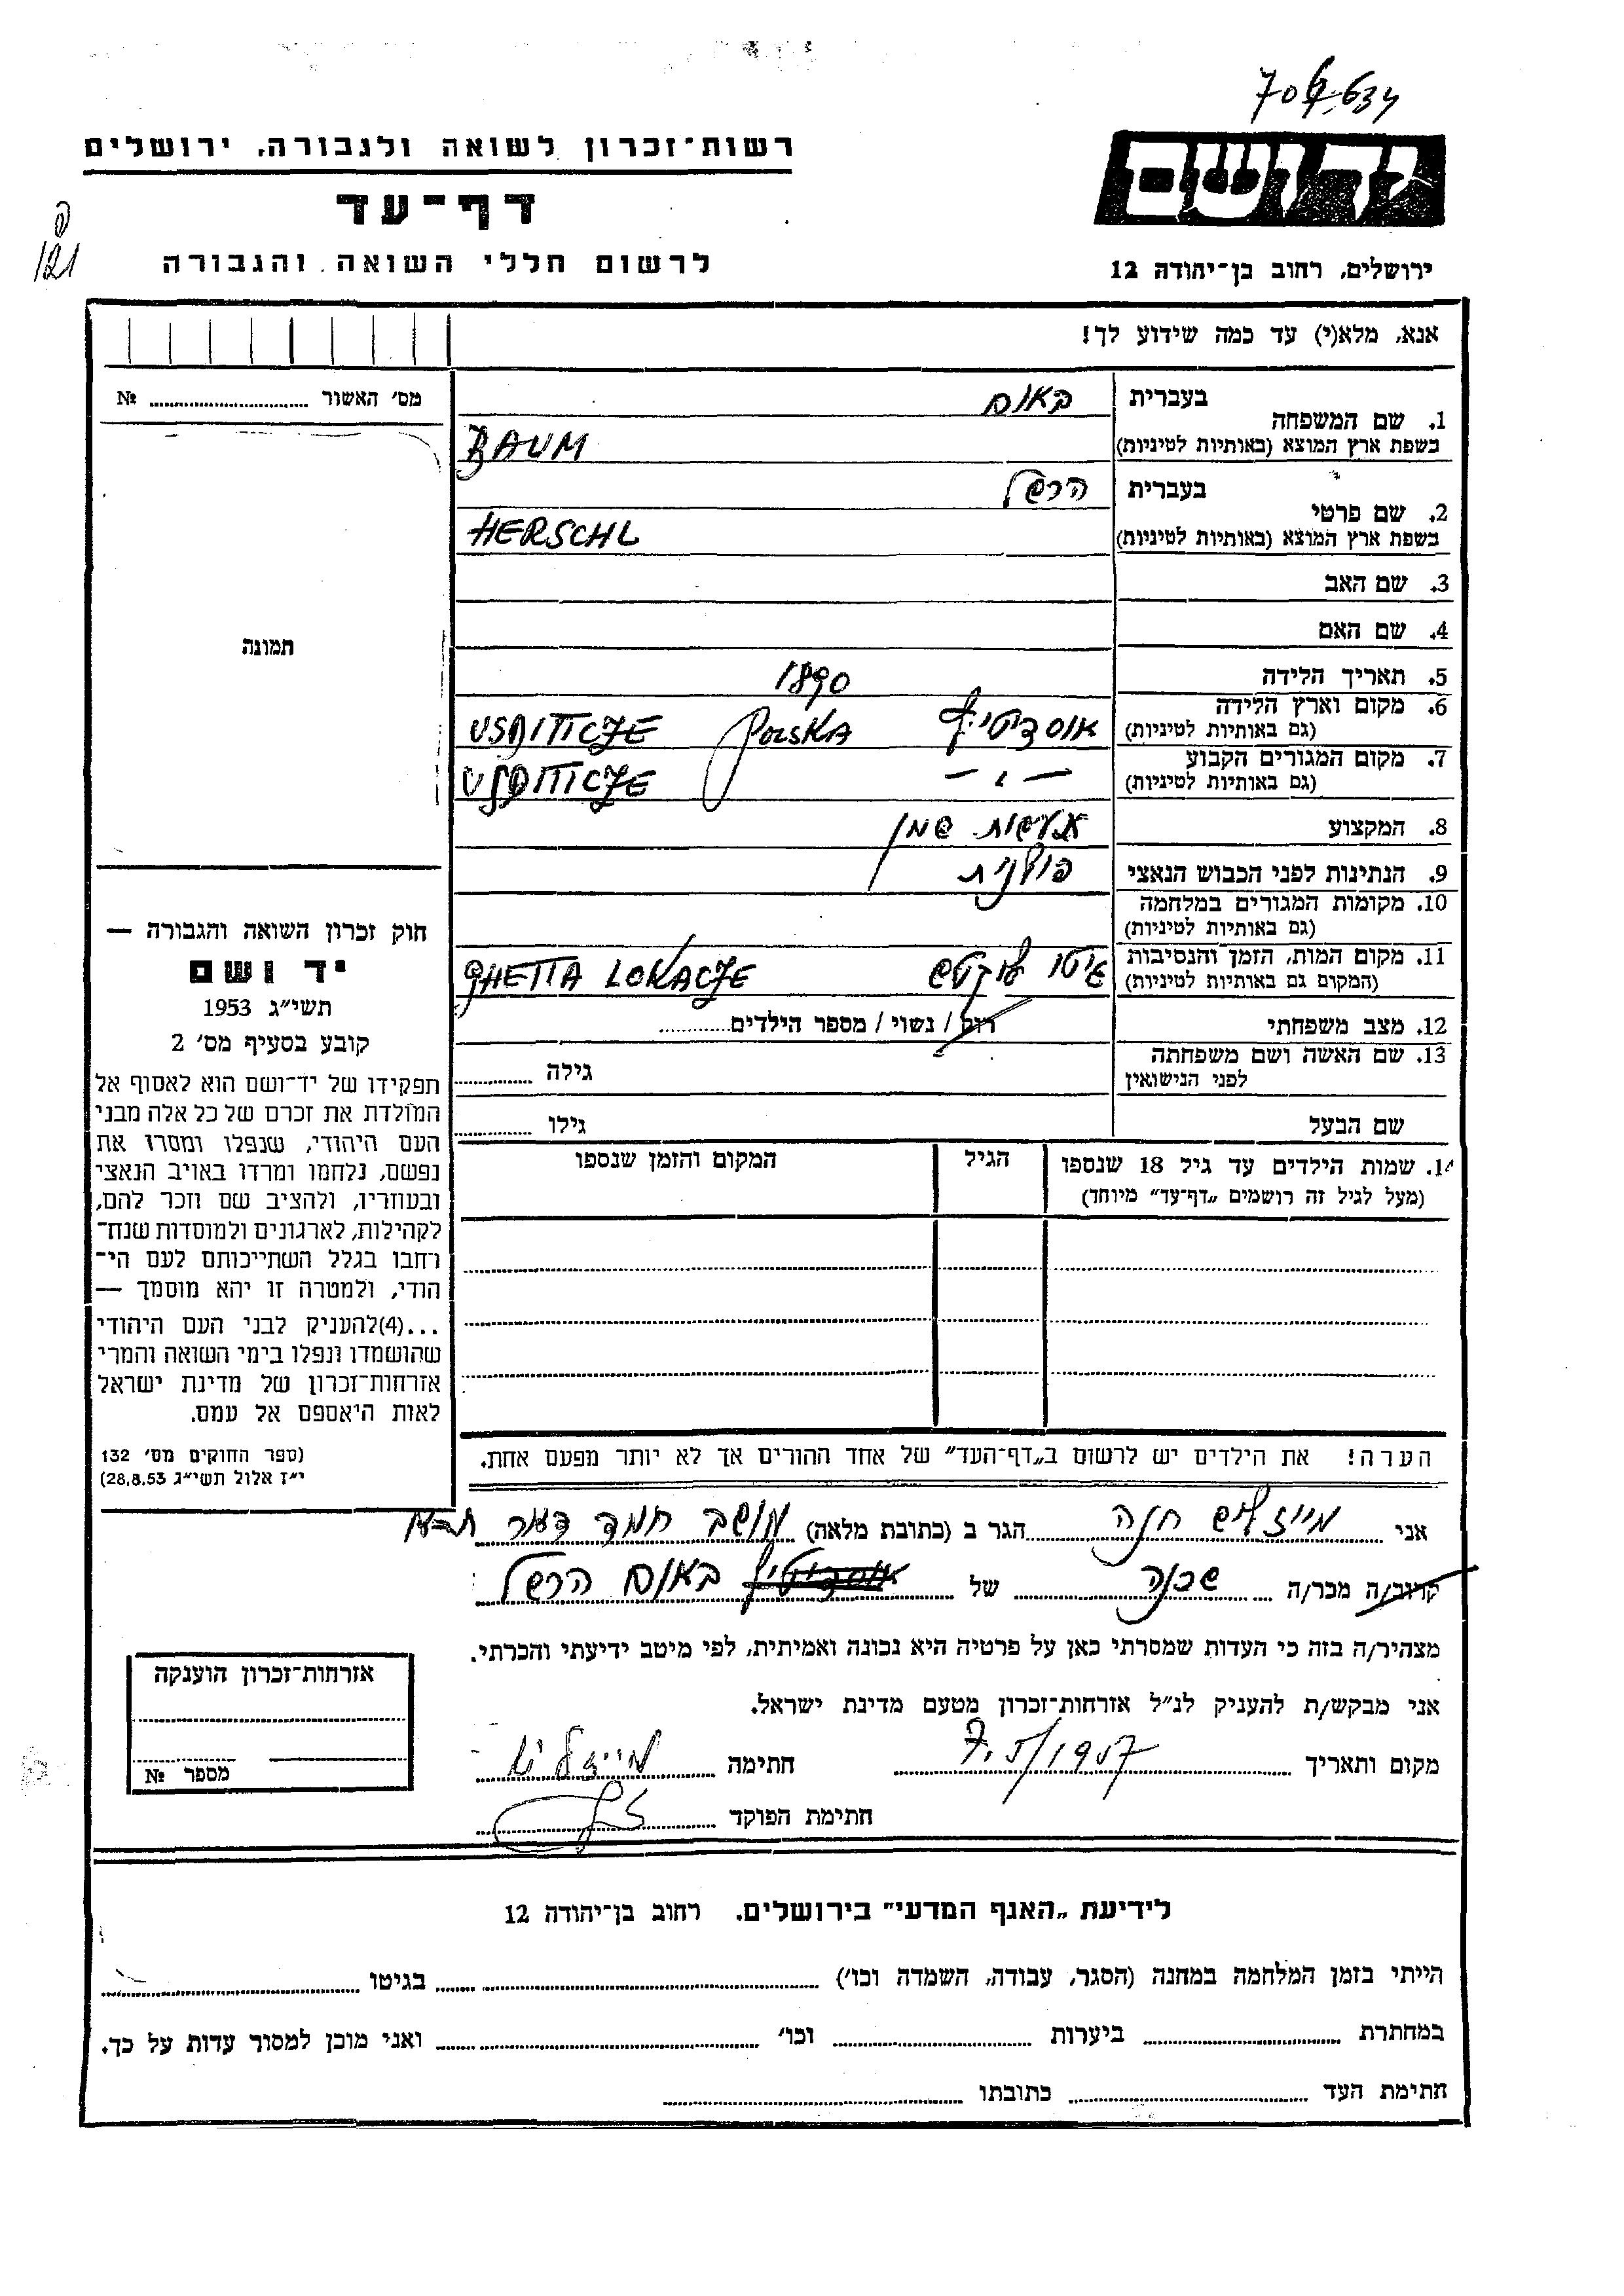 רשות־זכרון לשואה ולגבורה, ירושלים
דף־עד
לרשום חללי השואה והגבורה
ידושם
ירושלים, רחוב בן־יהודה 12
אנא, מלא(י) עד כמה שידוע לך!
מס׳ האשור № 
תמונה
1. שם המשפחה
בעברית באום
בשפת ארץ המוצא (באותיות לטיניות) BAUM
2. שם פרטי
בעברית הרשל
בשפת ארץ המוצא (באותיות לטיניות) HERSCHL
3. שם האב
4. שם האם
5. תאריך הלידה 1890
6. מקום וארץ הלידה
(גם באותיות לטיניות) POLSKA
7. מקום המגורים הקבוע
(גם באותיות לטיניות)
8. המקצוע שמן
9. הנתינות לפני הכבוש הנאצי פולנית
10. מקומות המגורים במלחמה
(גם באותיות לטיניות)
11. מקום המות, הזמן והנסיבות גיטו
(המקום גם באותיות לטיניות) GHETTA LOKACZE
12. מצב משפחתי רוק / נשוי / מספר הילדים
13. שם האשה ושם משפחתה
לפני הנישואין גילה
שם הבעל גילו
14. שמות הילדים עד גיל 18 שנספו
(מעל לגיל זה רושמים „דף־עד" מיוחד)
הגיל
המקום והזמן שנספו
חוק זכרון השואה והגבורה —
יד ושם
תשי״ג 1953
קובע בסעיף מס׳ 2
תפקידו של יד־ושם הוא לאסוף אל
המולדת את זכרם של כל אלה מבני
העם היהודי, שנפלו ומסרו את
נפשם, נלחמו ומרדו באויב הנאצי
ובעוזריו, ולהציב שם וזכר להם,
לקהילות, לארגונים ולמוסדות שנח־
רחבו בגלל השתייכותם לעם הי־
הודי, ולמטרה זו יהא מוסמך —
...(4)להעניק לבני העם היהודי
שהושמדו ונפלו בימי השואה והמרי
אזרחות־זכרון של מדינת ישראל
לאות היאספם אל עמם.
(ספר החוקים מס׳ 132
י״ז אלול תשי״ג 28,8,53)
הערה! את הילדים יש לרשום ב„דף־העד" של אחד ההורים אך לא יותר מפעם אחת.
אני מייזליש חנה הגר ב (כתובת מלאה) מושב חמד
קרוב/ה מכר/ה שכנה של באום הרשל
מצהיר/ה בזה כי העדות שמסרתי כאן על פרטיה היא נכונה ואמיתית, לפי מיטב ידיעתי והכרתי.
אני מבקש/ת להעניק לנ״ל אזרחות־זכרון מטעם מדינת ישראל.
מקום ותאריך חתימה
חתימת הפוקד
אזרחות־זכרון הוענקה
מספר №
לידיעת „האנף המדעי" בירושלים. רחוב בן־יהודה 12
הייתי בזמן המלחמה במחנה (הסגר, עבודה, השמדה וכו׳) בגיטו
במחתרת ביערות וכו׳ ואני מוכן למסור עדות על כך.
חתימת העד כתובתו